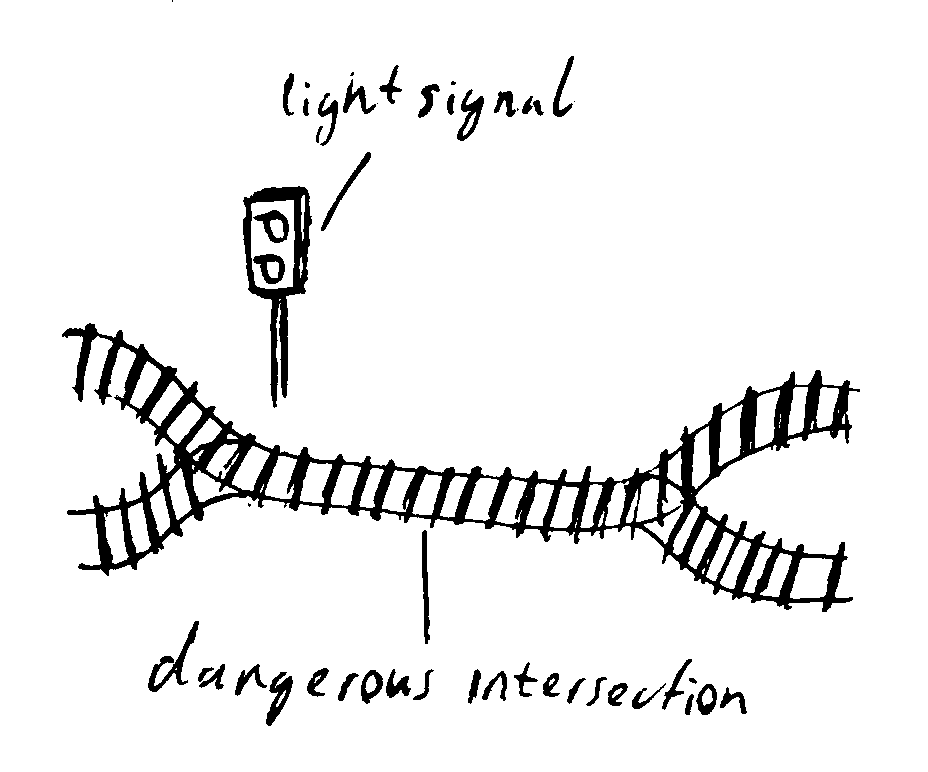 light signal
dangerous intersection